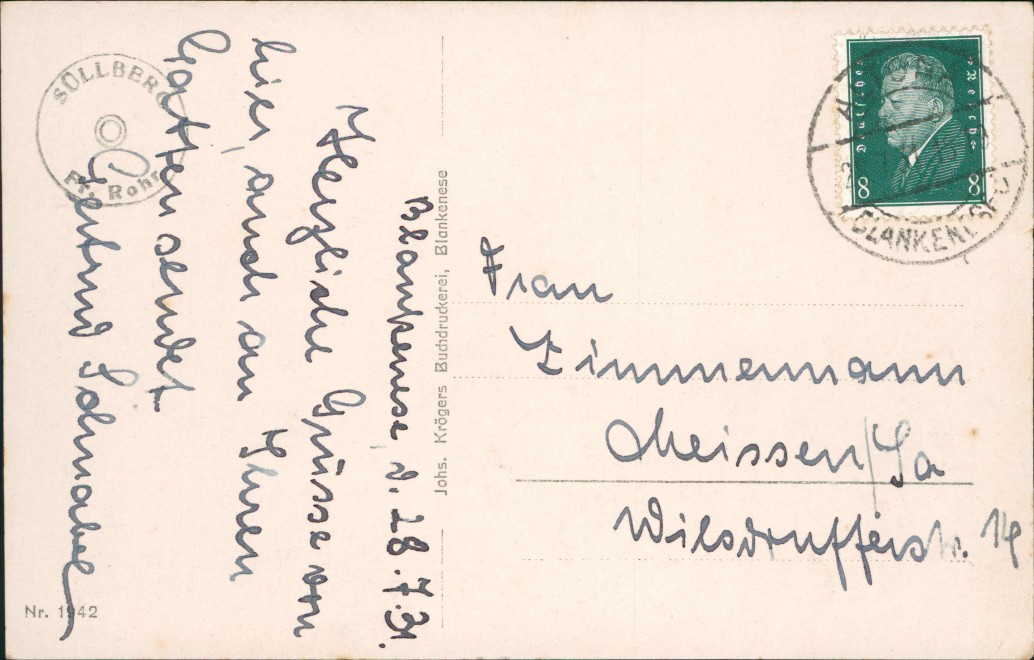 SÜLLBERG
Fr. Rohr
Blankenese, d. 28.7.31.
Herzliche Grüsse von
hier, auch an Ihren
Gatten sendet
Gertrud Schnabel
Nr. 1942
Johs. Krögers Buchdruckerei, Blankenese
Deutsches Reich
8 8
BLANKENESE
Frau
Zimmermann
Meissen/Sa
Wilsdrufferstr. 14